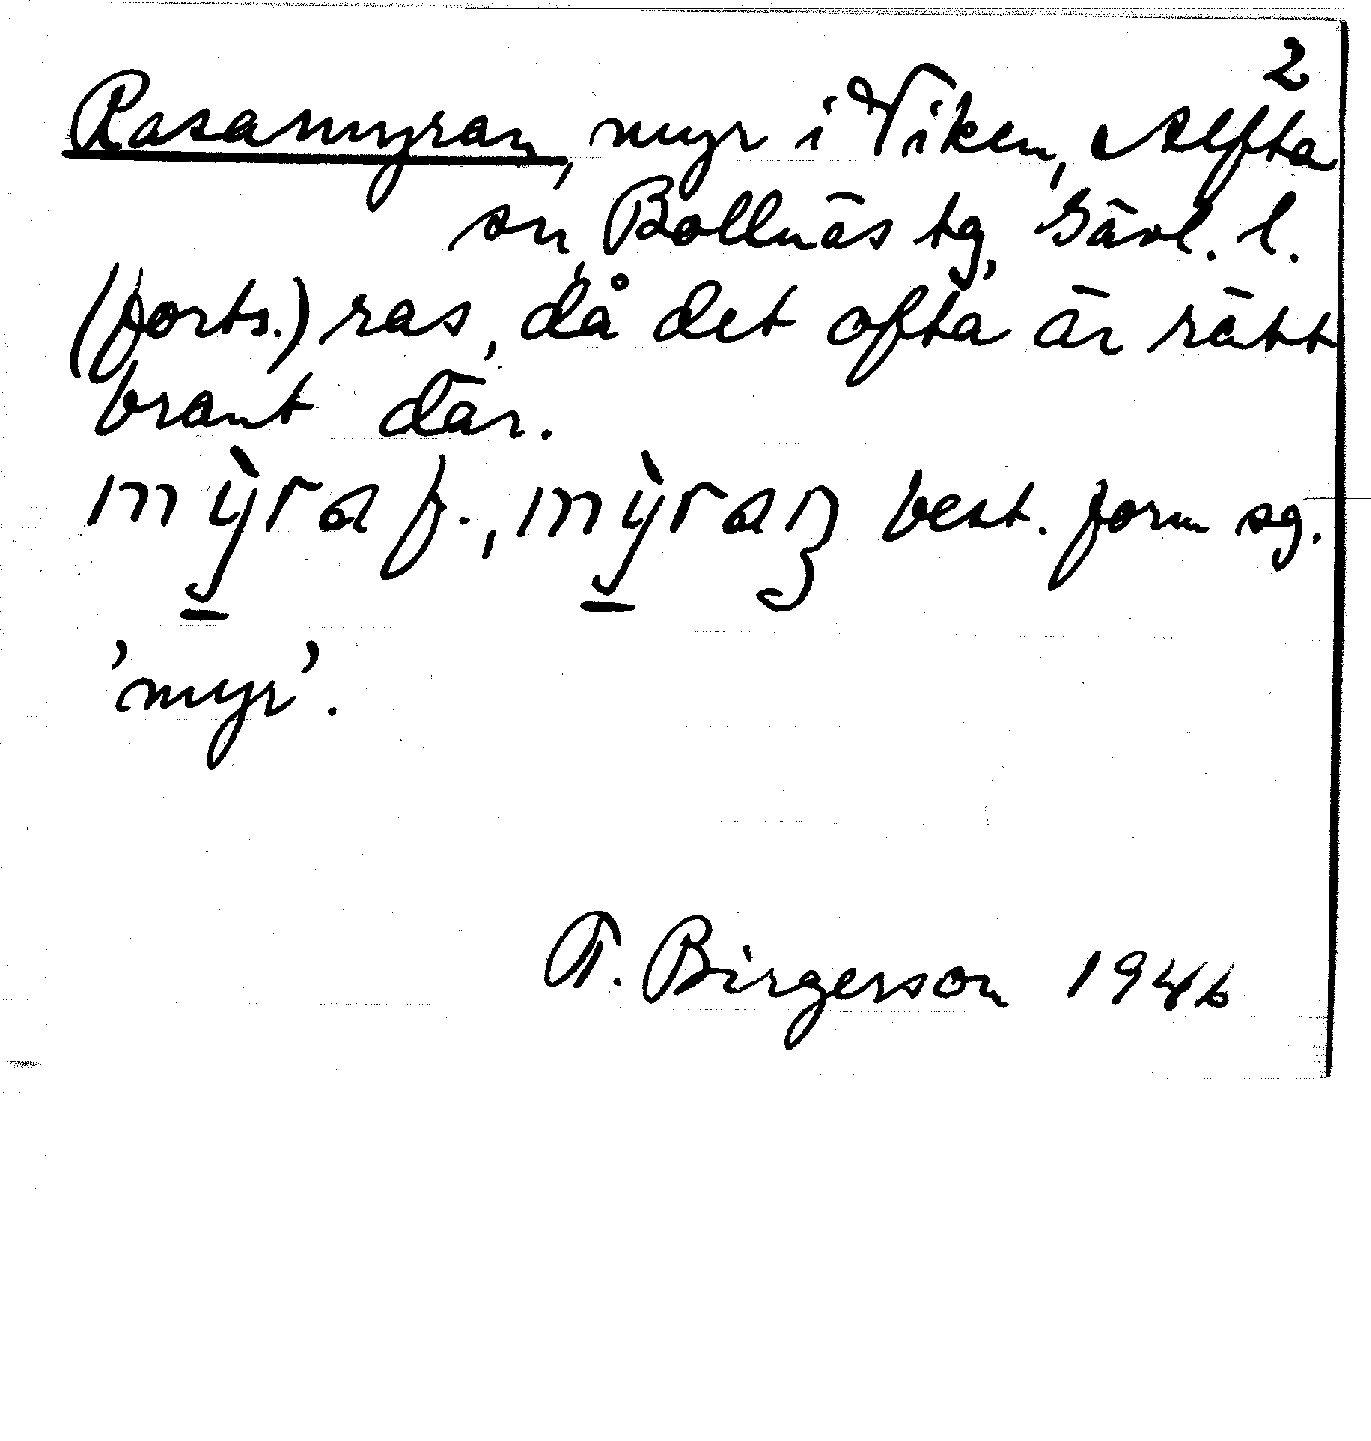 2
Rasamyran, myr i Viken, Alfta
sn, Bollnäs tg, Gävl. l.
(forts.) ras, då det ofta är rätt
brant där.
mỳ̠ra f., mỳ̠raŋ best. form sg.
'myr'.
T. Birgerson 1946